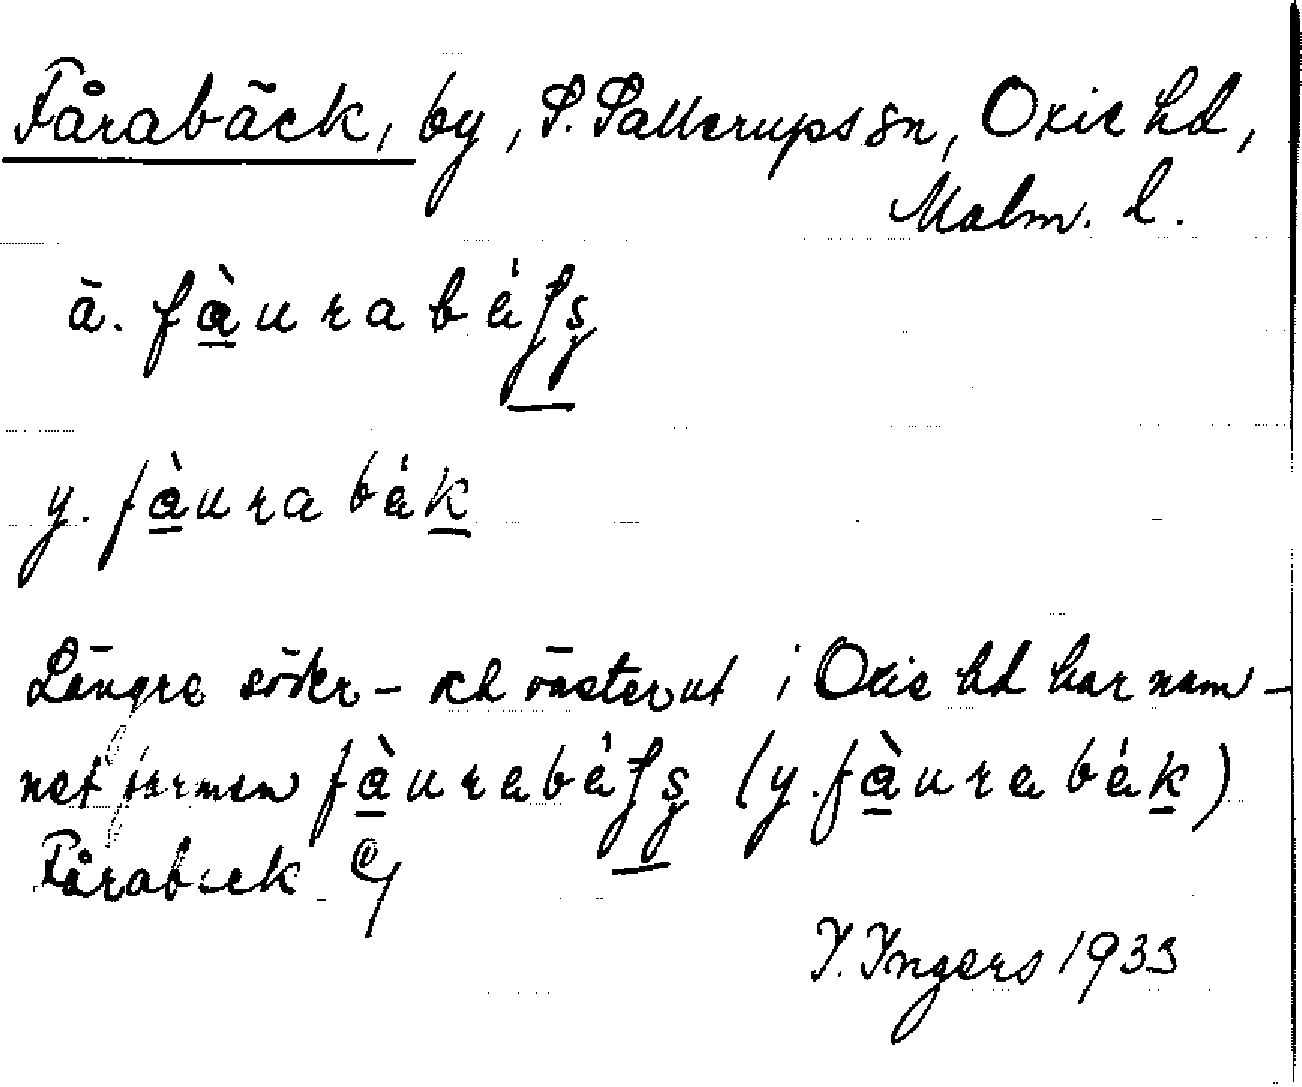 Fårabäck, by, S. Sallerups sn, Oxie hd,
Malm. l.
ä. fàurabéʃʂ
y. fàurabék
Längre söder- och västerut i Oxie hd har nam-
net formen fàurabéʃʂ (y. fàurabék)
Fårabeck
I. Ingers 1933